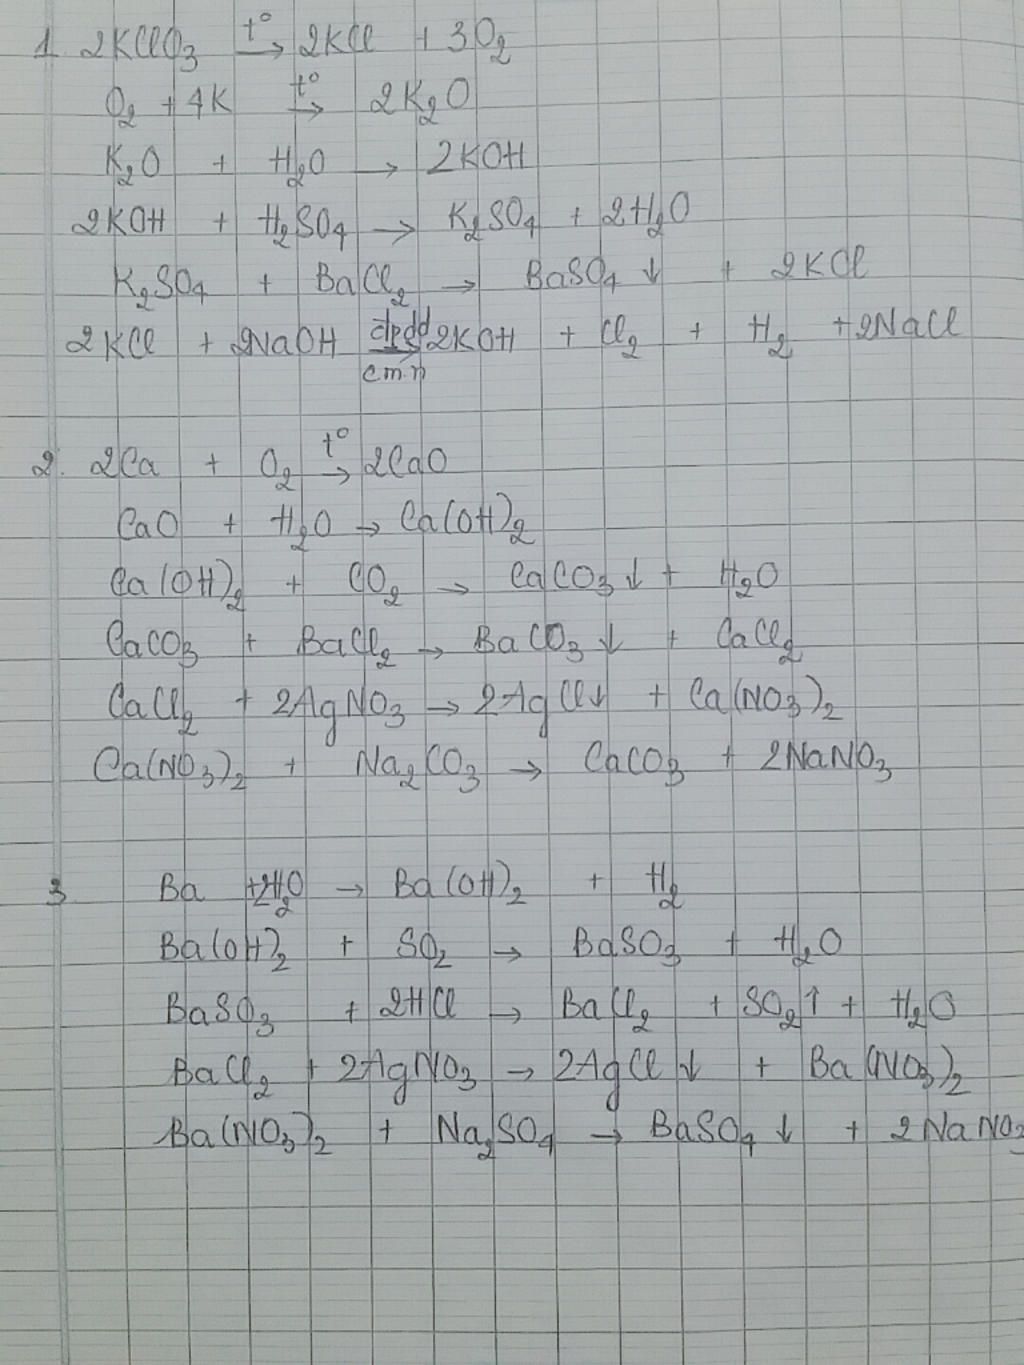 1. 2KClO3 t° → 2KCl + 3O2
O2 + 4K t° → 2K2O
K2O + H2O → 2KOH
2KOH + H2SO4 → K2SO4 + 2H2O
K2SO4 + BaCl2 → BaSO4 ↓ + 2KCl
2KCl + 2NaOH đpdd c.m.n → 2KOH + Cl2 + H2 + 2NaCl
2. 2Ca + O2 t° → 2CaO
CaO + H2O → Ca(OH)2
Ca(OH)2 + CO2 → CaCO3 ↓ + H2O
CaCO3 + BaCl2 → BaCO3 ↓ + CaCl2
CaCl2 + 2AgNO3 → 2AgCl ↓ + Ca(NO3)2
Ca(NO3)2 + Na2CO3 → CaCO3 + 2NaNO3
3 Ba + 2H2O → Ba(OH)2 + H2
Ba(OH)2 + SO2 → BaSO3 + H2O
BaSO3 + 2HCl → BaCl2 + SO2 ↑ + H2O
BaCl2 + 2AgNO3 → 2AgCl ↓ + Ba(NO3)2
Ba(NO3)2 + Na2SO4 → BaSO4 ↓ + 2NaNO3